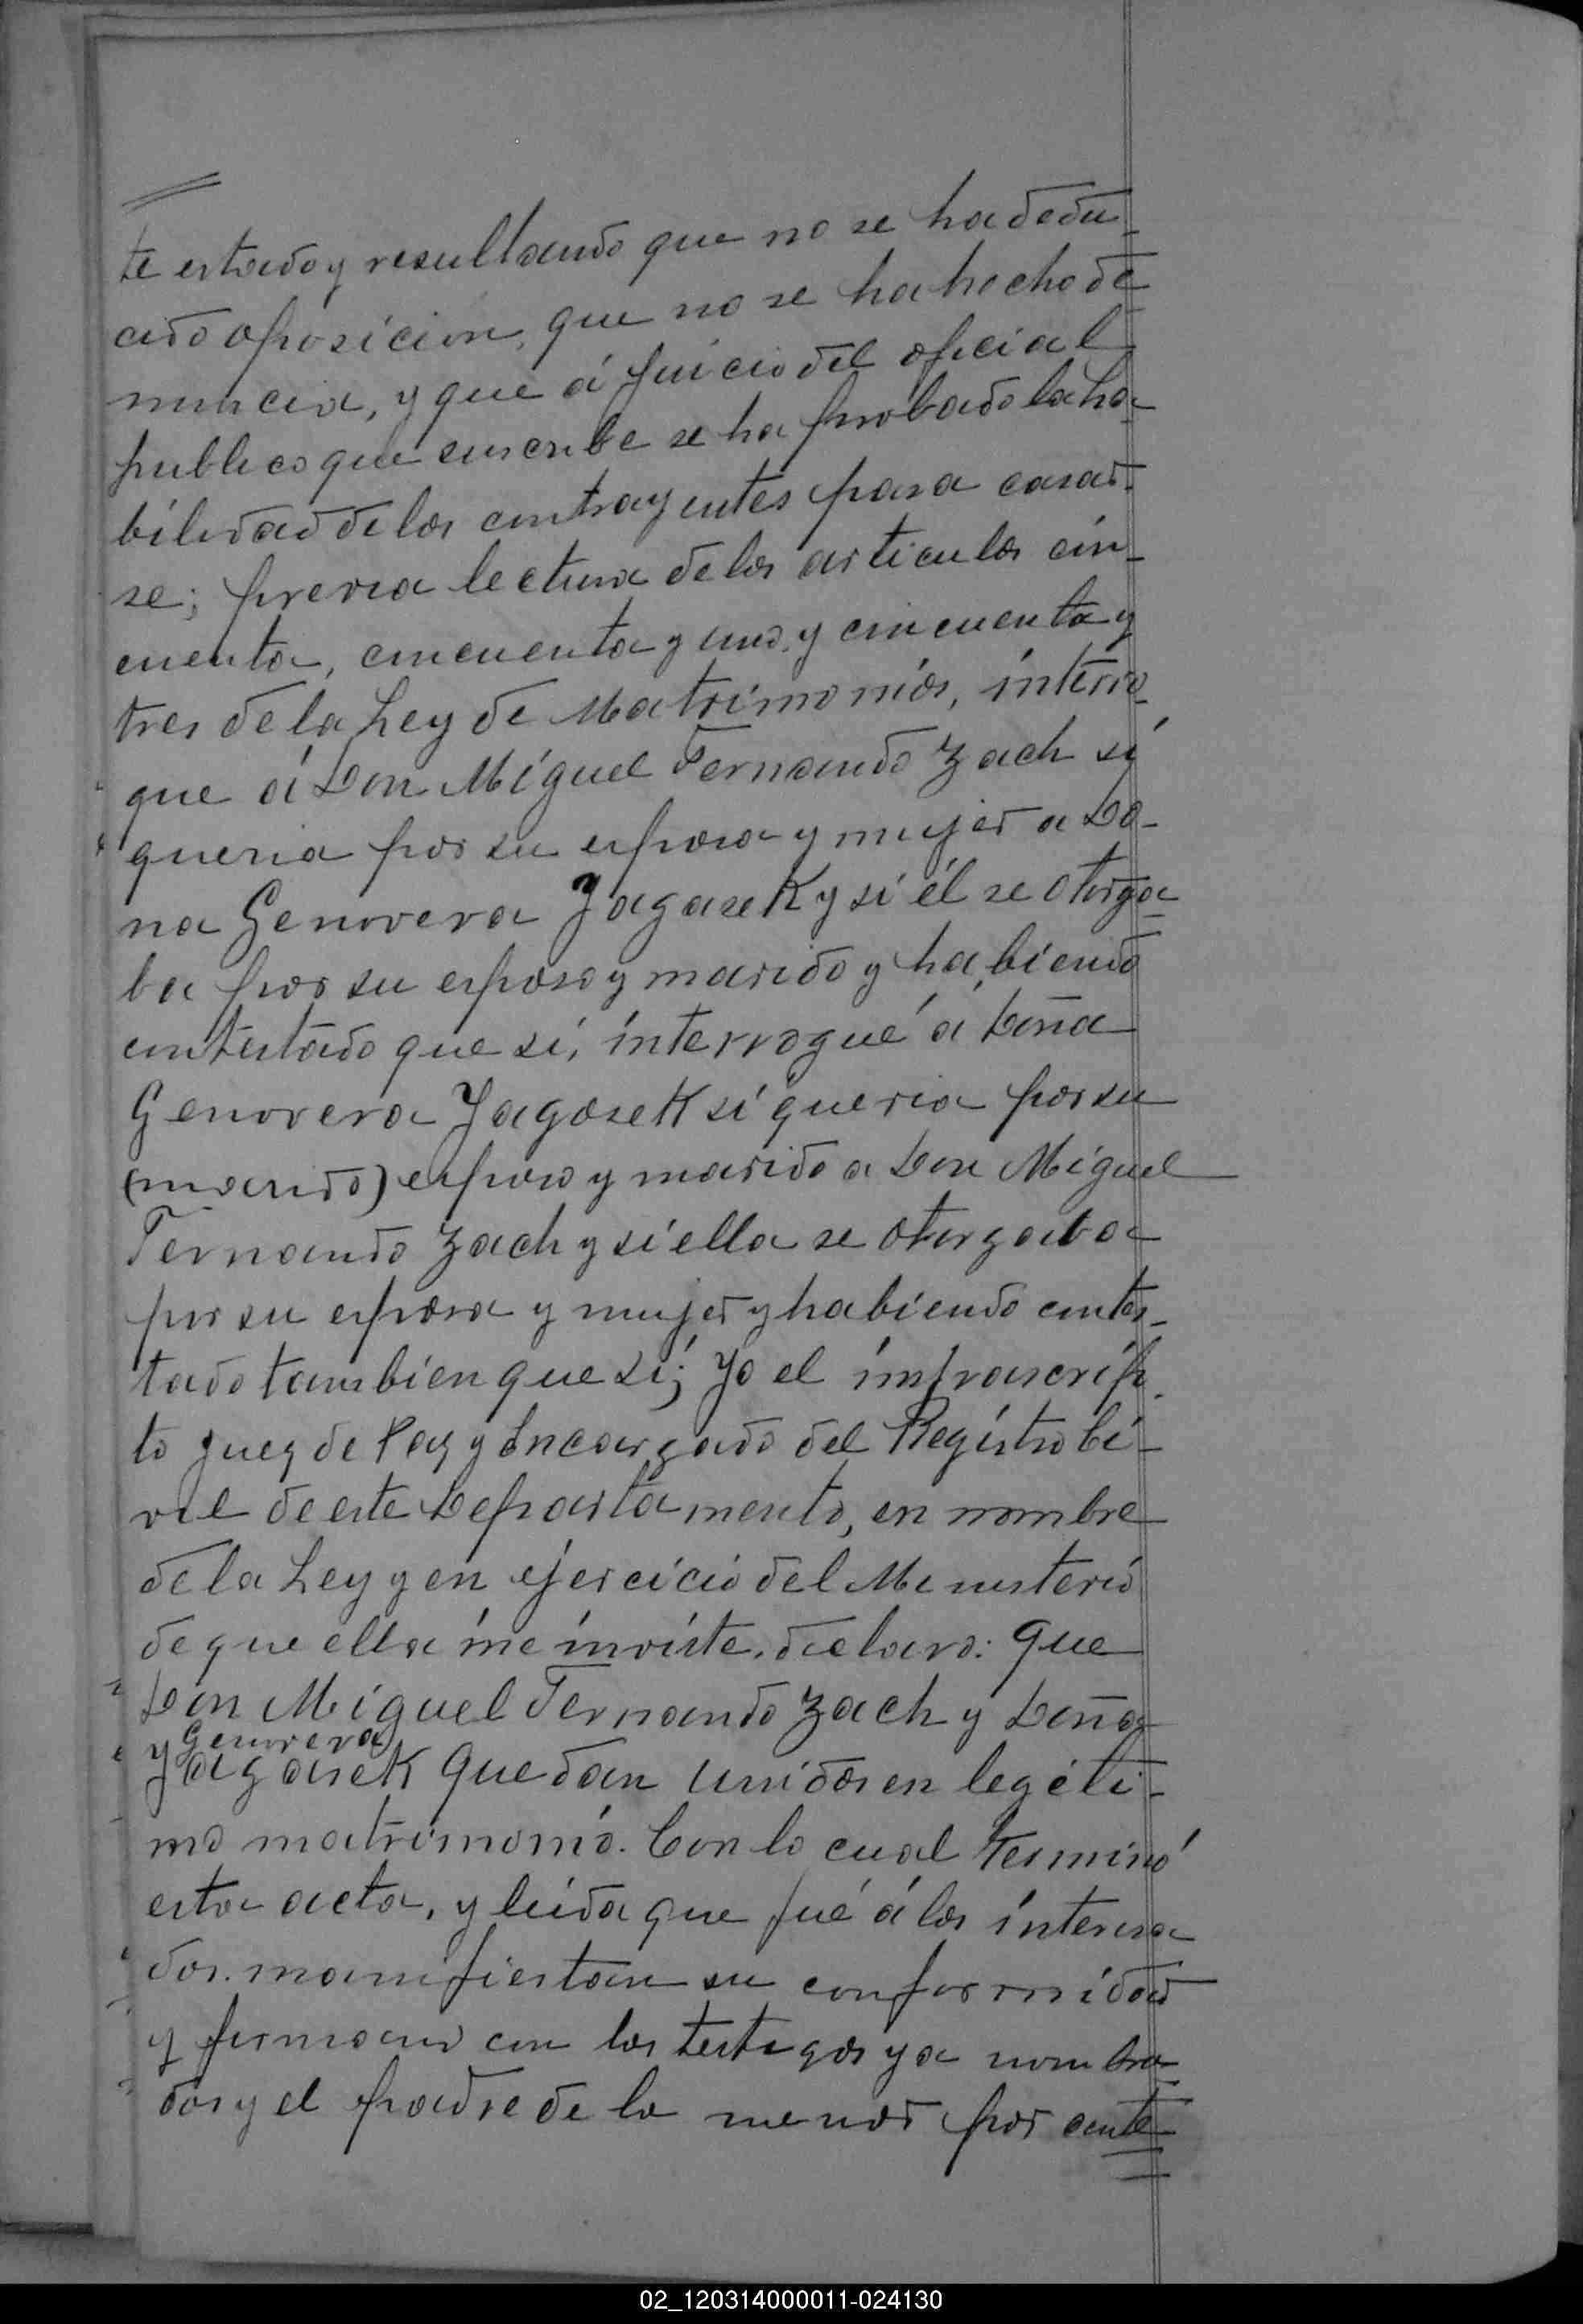 te estado y resultando que no se ha dedu_
cido oposicion, que no se ha hecho de_
nuncia, y que á juicio del oficial
publico que suscribe se ha probado la ha_
bilidad de los contrayentes para casar_
se; previa lectura de los articulos cin_
cuenta, cincuenta y uno, y cincuenta y
tres de la Ley de Matrimonios, interro_
gue á Don Miguel Fernando Zach sí
queria por su esposa y mujer a Do_
na Genoveva Jagasek y sí él se otorga_
ba por su esposo y marido y habiendo
contestado que sí, interrogué á Doña
Genoveva Jagasek sí queria por su
(marido) esposo y marido a Don Miguel
Fernando Zach y sí ella se otorgaba
por su esposa y mujer y habiendo contes_
tado tambien que sí; Yo el infrascrip_
to Juez de Paz y Encargado del Registro Ci_
vil de este Departamento, en nombre
de la Ley y en ejercicio del Ministerio
de que ella me inviste, declaro: Que
Don Miguel Fernando Zach y Doña
y Genoveva
Jagasek quedan unidos en legíti_
mo matrimonio. Con lo cual terminó
esta acta, y leída que fué á los interesa
dos. manifiestan su conformidad
y firmaron con los testigos ya nombra_
dos y el padre de la menor por ante
02_120314000011-024130